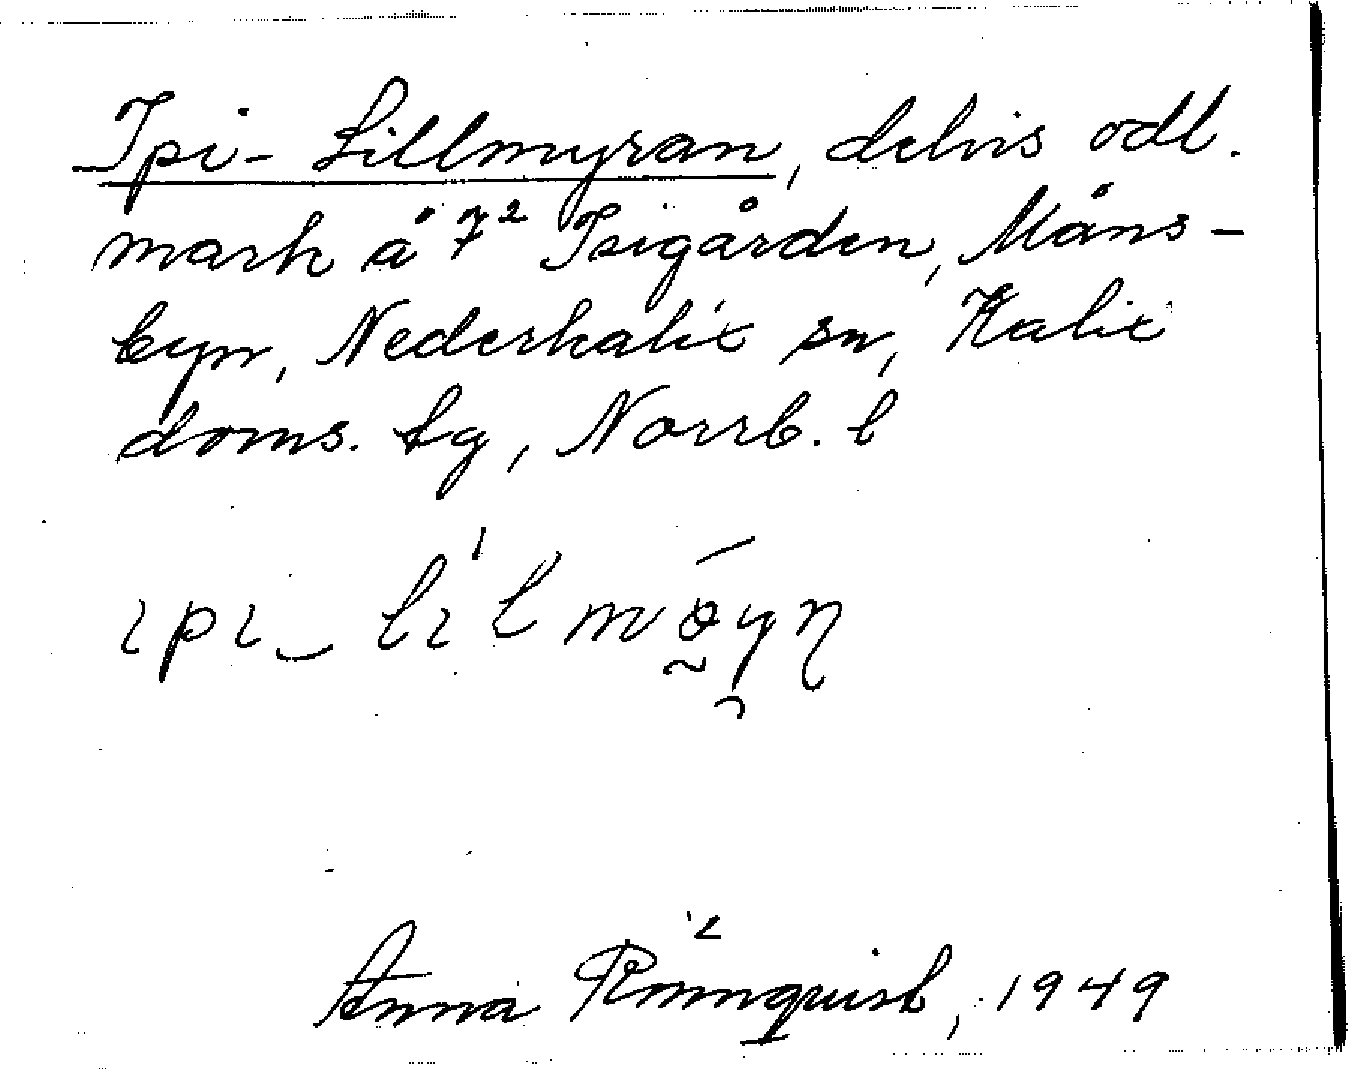 Ipi-Lillmyran, delvis odl.
mark å 7² Isigården, Måns-
byn, Nederkalix sn, Kalix
doms. tg, Norrb. l
Anna Rönnquist, 1949